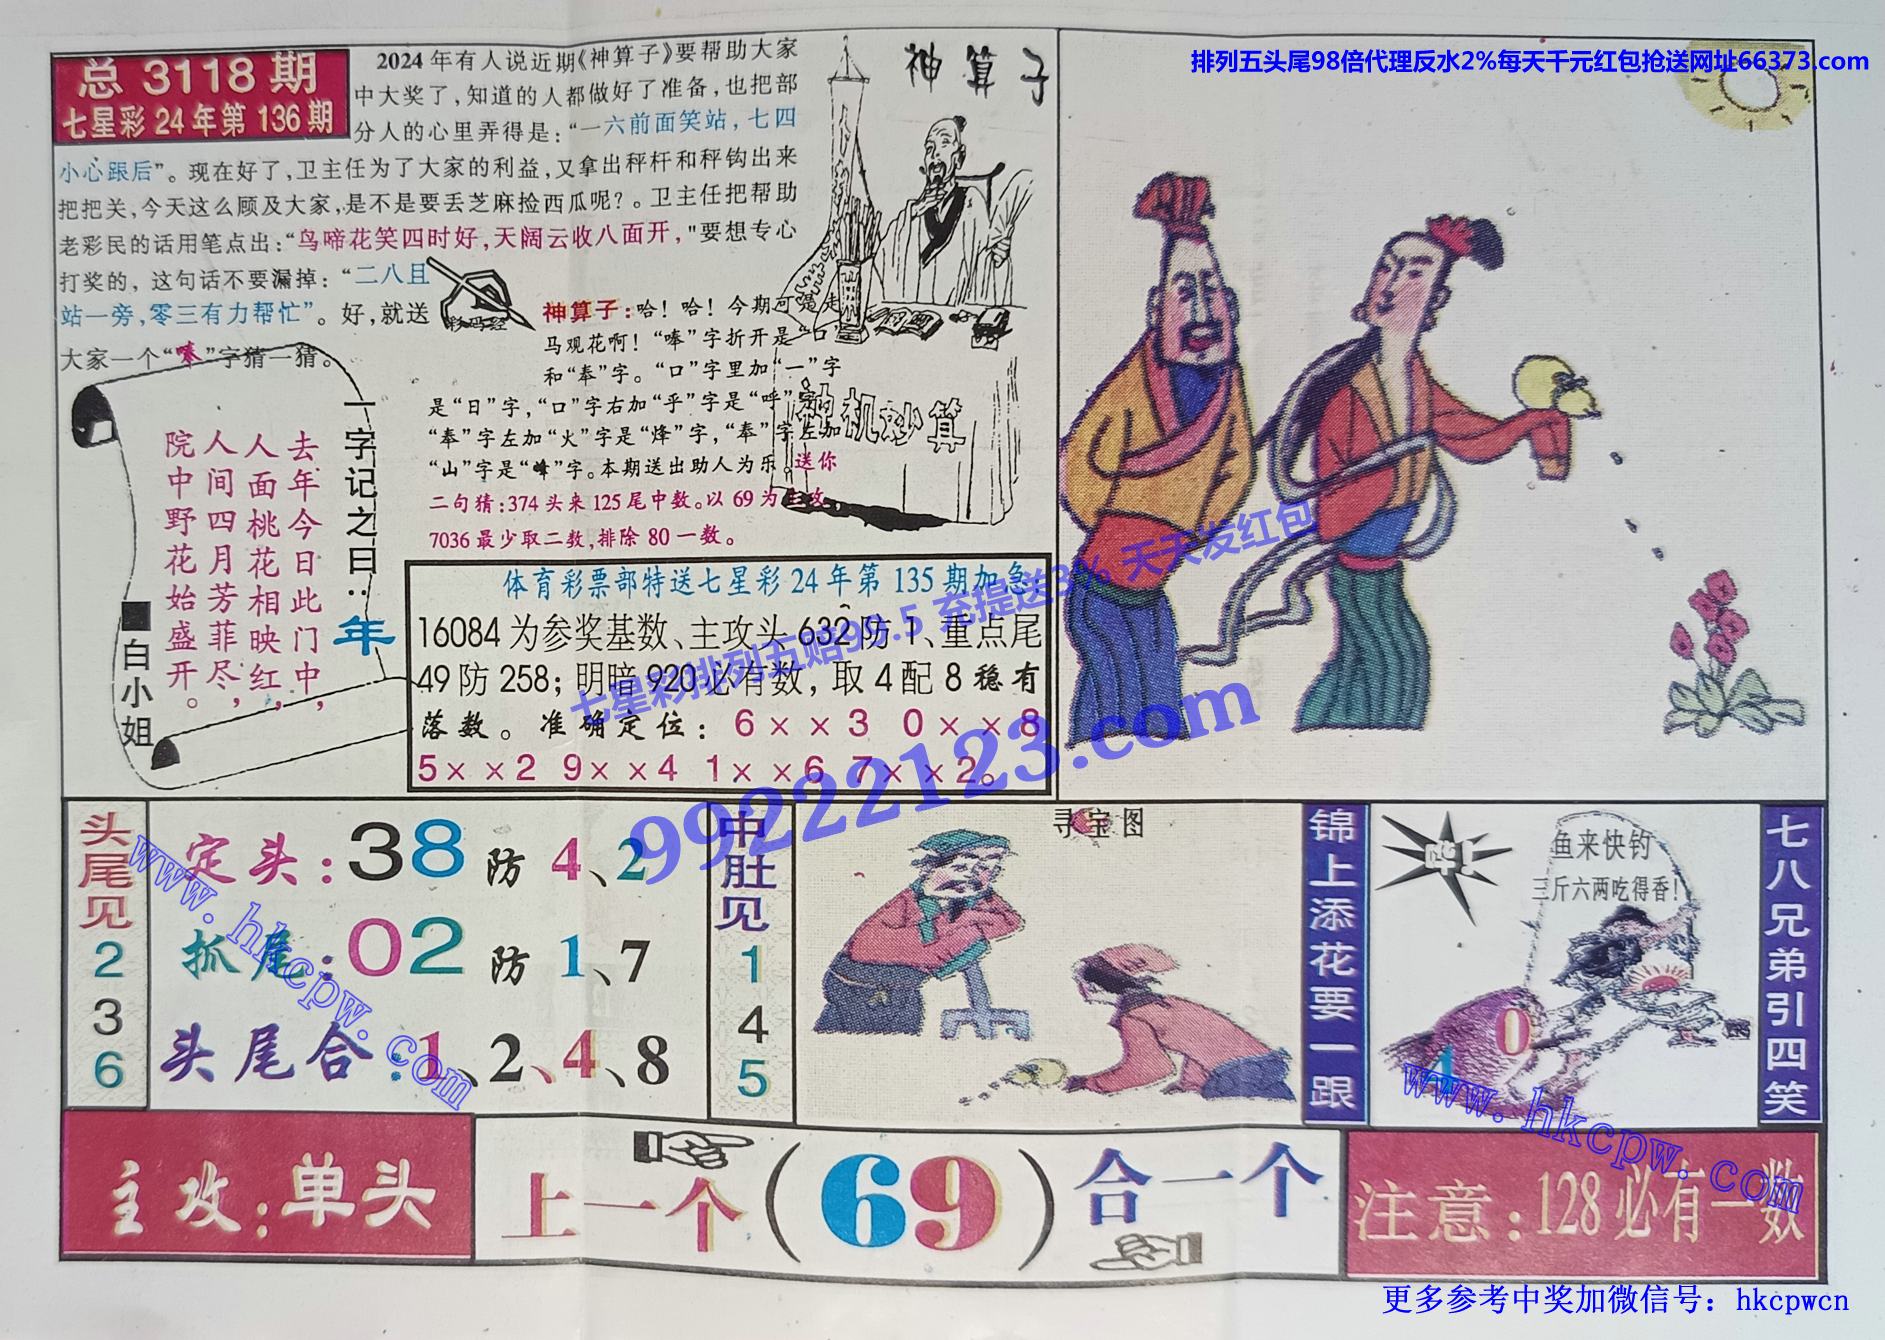 排列五头尾98倍代理反水2%每天千元红包抢送网址66373.com
总 3118 期
七星彩 24 年第 136 期
2024 年有人说近期《神算子》要帮助大家
中大奖了，知道的人都做好了准备，也把部
分人的心里弄得是：“一六前面笑站，七四
小心跟后”。现在好了，卫主任为了大家的利益，又拿出秤杆和秤钩出来
把把关，今天这么顾及大家，是不是要丢芝麻捡西瓜呢？。卫主任把帮助
老彩民的话用笔点出：“鸟啼花笑四时好，天阔云收八面开，"要想专心
打奖的，这句话不要漏掉：“二八且
站一旁，零三有力帮忙”。好，就送
大家一个“唪”字猜一猜。
彩码经
神算子
神算子：哈！哈！今期可是走
马观花啊！“唪”字折开是“口”
和“奉”字。“口”字里加“一”字
是“日”字，“口”字右加“乎”字是“呼”字，
“奉”字左加“火”字是“烽”字，“奉”字左加
“山”字是“峰”字。本期送出助人为乐。送你
二句猜：374 头来 125 尾中数。以 69 为主攻
7036 最少取二数，排除 80 一数。
神机妙算
一字记之曰：年
去年今日此门中，
人面桃花相映红，
人间四月芳菲尽，
院中野花始盛开。
■白小姐
体育彩票部特送七星彩 24 年第 135 期加急
16084 为参奖基数、主攻头 632 防 1、重点尾
49 防 258；明暗 920 必有数，取 4 配 8 稳有
落数。准确定位：6××3 0××8
5××2 9××4 1××6 7××2。
七星彩排列五赔99.5 充提送3% 天天发红包
99222123.com
头尾见
2
3
6
定头：38 防 4、2
抓尾：02 防 1、7
头尾合：1、2、4、8
中肚见
1
4
5
寻宝图
锦上添花要一跟
鱼来快钓
三斤六两吃得香！
0
4
七八兄弟引四笑
www.hkcpw.com
www.hkcpw.com
主攻：单头
上一个（69）合一个
注意：128 必有一数
更多参考中奖加微信号：hkcpwcn